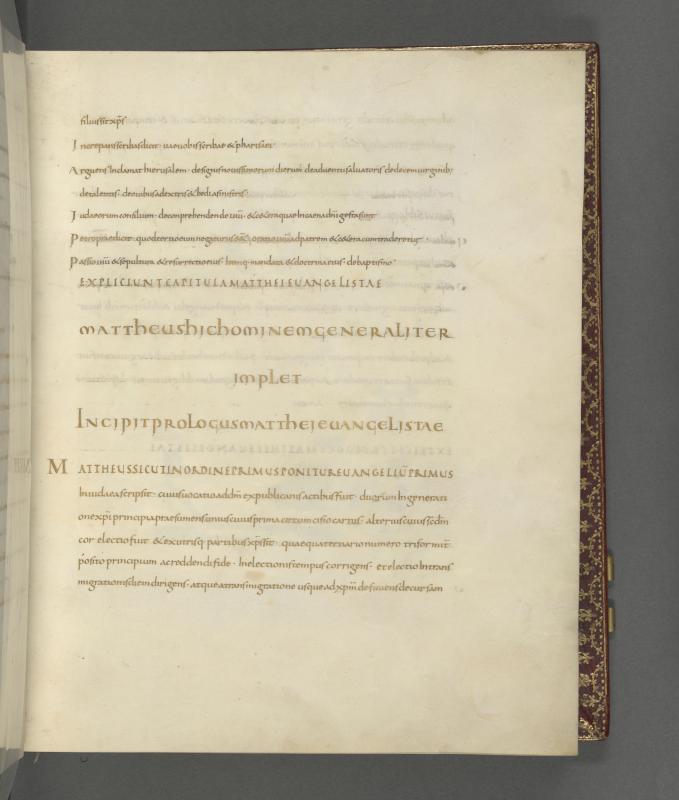 filius sit xps
Increpans scribas dicit · uae uobis scribae & pharisaei
Arguens inclamat hierusalem · de signis nouissimorum dierum de aduentu saluatoris de decem uirginib;
de talentis · de ouibus a dextris & hedis a sinistris
Iudaeorum consilium · de comprehendendo ihu · & cetera quae in caena dni gesta sunt
Petro praedicit · quod ter uocem negaturus ess& · oratio ihu ad patrem & cetera cum traderetur
Passio ihu & sepultura & resurrectio eius · itemq; mandata & doctrina eius de baptismo
EXPLICIUNT CAPITULA MATTHEI EUANGELISTAE
MATTHEUS HIC HOMINEM GENERALITER
IMPLET
INCIPIT PROLOGUS MATTHEI EUANGELISTAE
MATTHEUS SICUT IN ORDINE PRIMUS PONITUR EUANGELIU PRIMUS
In iudaea scripsit · cuius uocatio ad dm ex publicanis actibus fuit · duorum in generati
one xpi principia praesumens unius cuius prima circumcisio carnis · alterius cuius scdm
cor electio fuit & ex utrisq; partibus xps sit · quaeque
posito principium a credendi fide · in electionis tempus corrigens · et electio in trans
migrationis diem dirigens · atque a transmigratione usque ad xpm definiens decursam